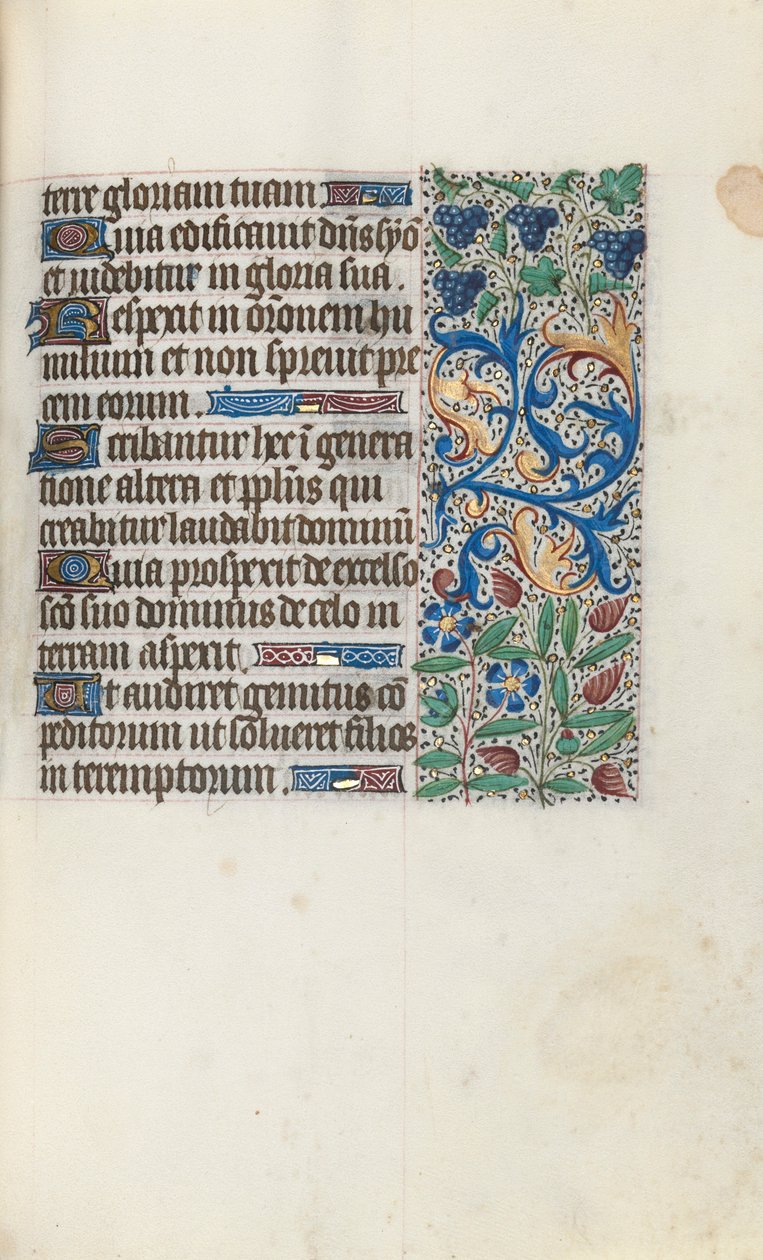 terre gloriam tuam
Quia edificavit dn̄s syō
et videbitur in gloria sua.
Respexit in or̄onem hu
milium et non sprevit pre
cem eorum.
Scribantur hec ī genera
tione altera et ppl̄us qui
creabitur laudabit dominū
Quia prospexit de excelso
sc̄o suo dominus de celo in
terram aspexit.
Ut audiret gemitus cō
peditorum ut solueret filios
interemptorum.